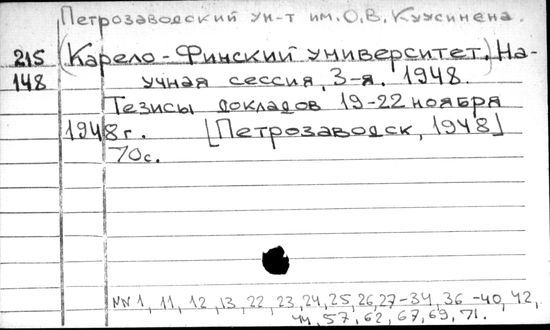 Петрозаводский ун-т им. О.В. Куусинена.
215 (Карело-Финский университет.) На-
148 учная сессия, 3-я. 1948.
Тезисы докладов 19-22 ноября
1948 г. [Петрозаводск, 1948]
70с.
NN 1, 11, 12, 13, 22, 23, 24, 25, 26, 27-34, 36-40, 42,
44, 57, 62, 67, 69, 71.